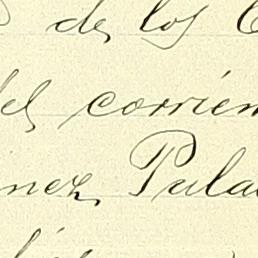 de los
del corrien
nez, Pula